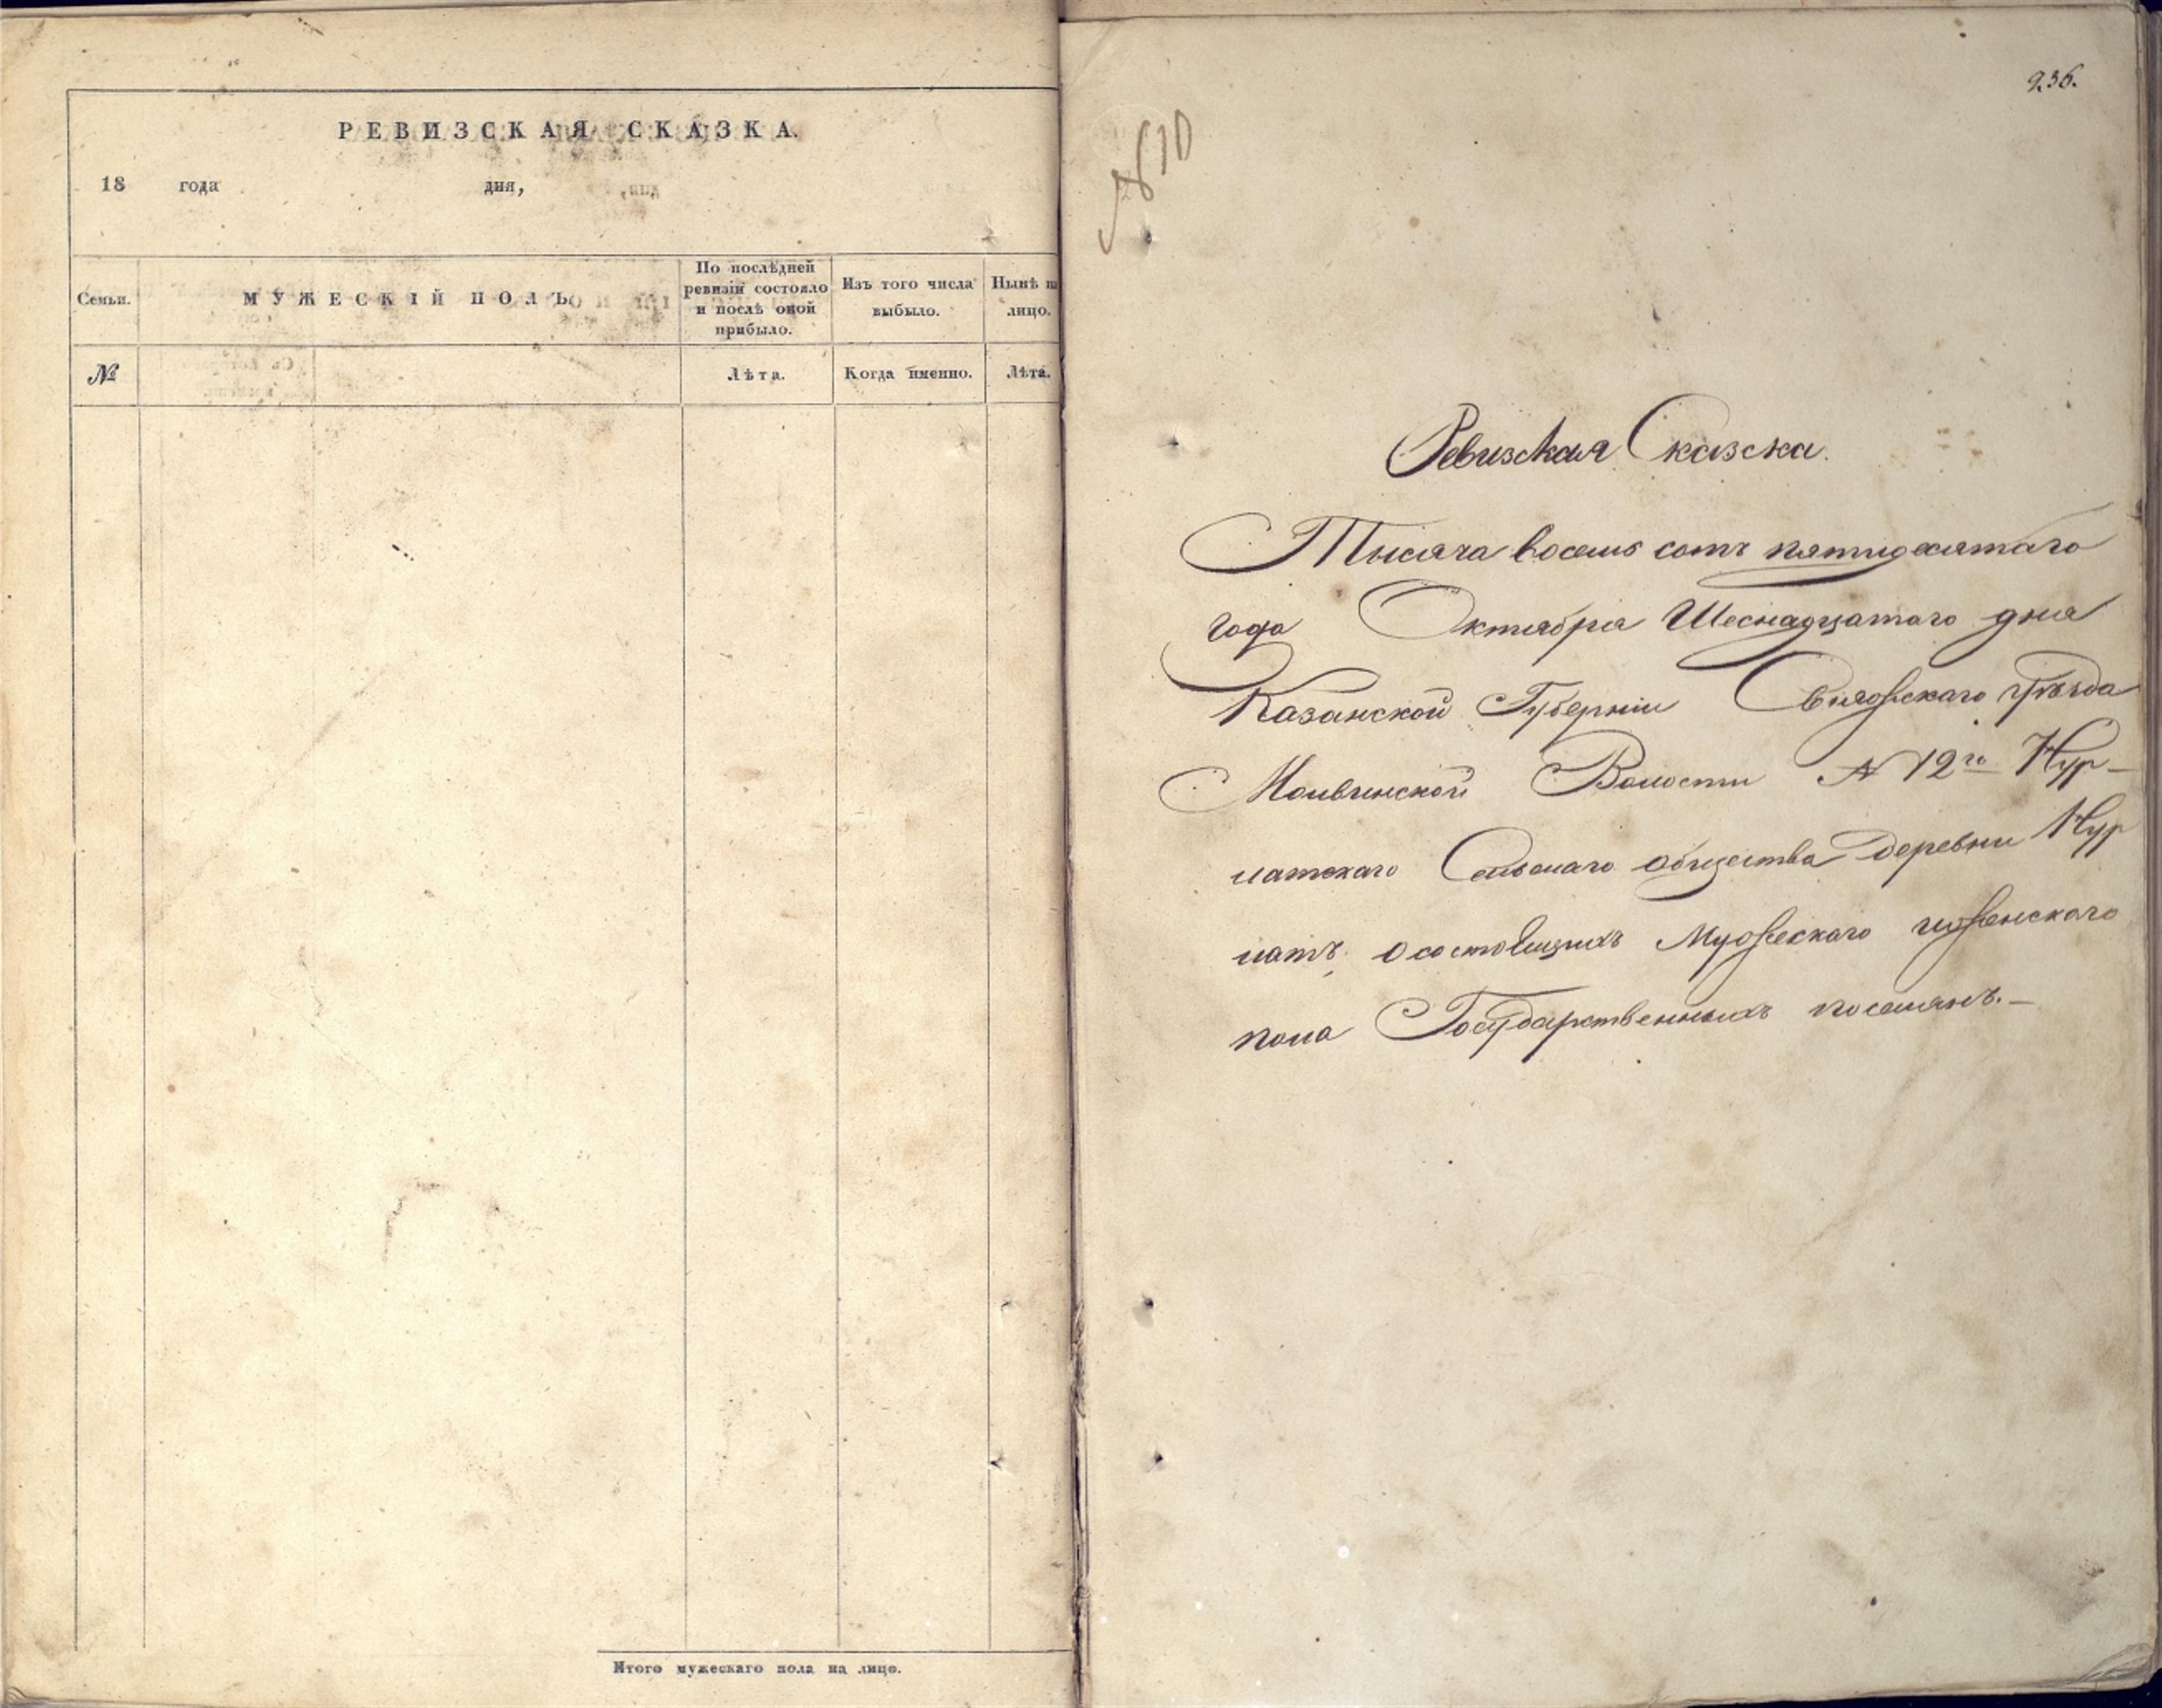 РЕВИЗСКАЯ СКАЗКА.
18 года дня,
Семьи.
МУЖЕСКІЙ ПОЛЪ
По послѣдней
ревизіи состояло
и послѣ оной
прибыло.
Изъ того числа
выбыло.
Нынѣ на
лицо.
№
Лѣта.
Когда именно.
Лѣта.
Итого мужескаго пола на лицо.
236.
№10
Ревизская Сказска.
Тысяча восемь сотъ пятидесятаго
года Октября Шеснадцатаго дня
Казанской Губерніи Свіяжскаго уѣзда
Волости N 12го Нур-
латскаго Сельскаго общества деревни Нур
латъ. о состоящихъ Мужескаго и женскаго
пола Государственныхъ поселянъ.—